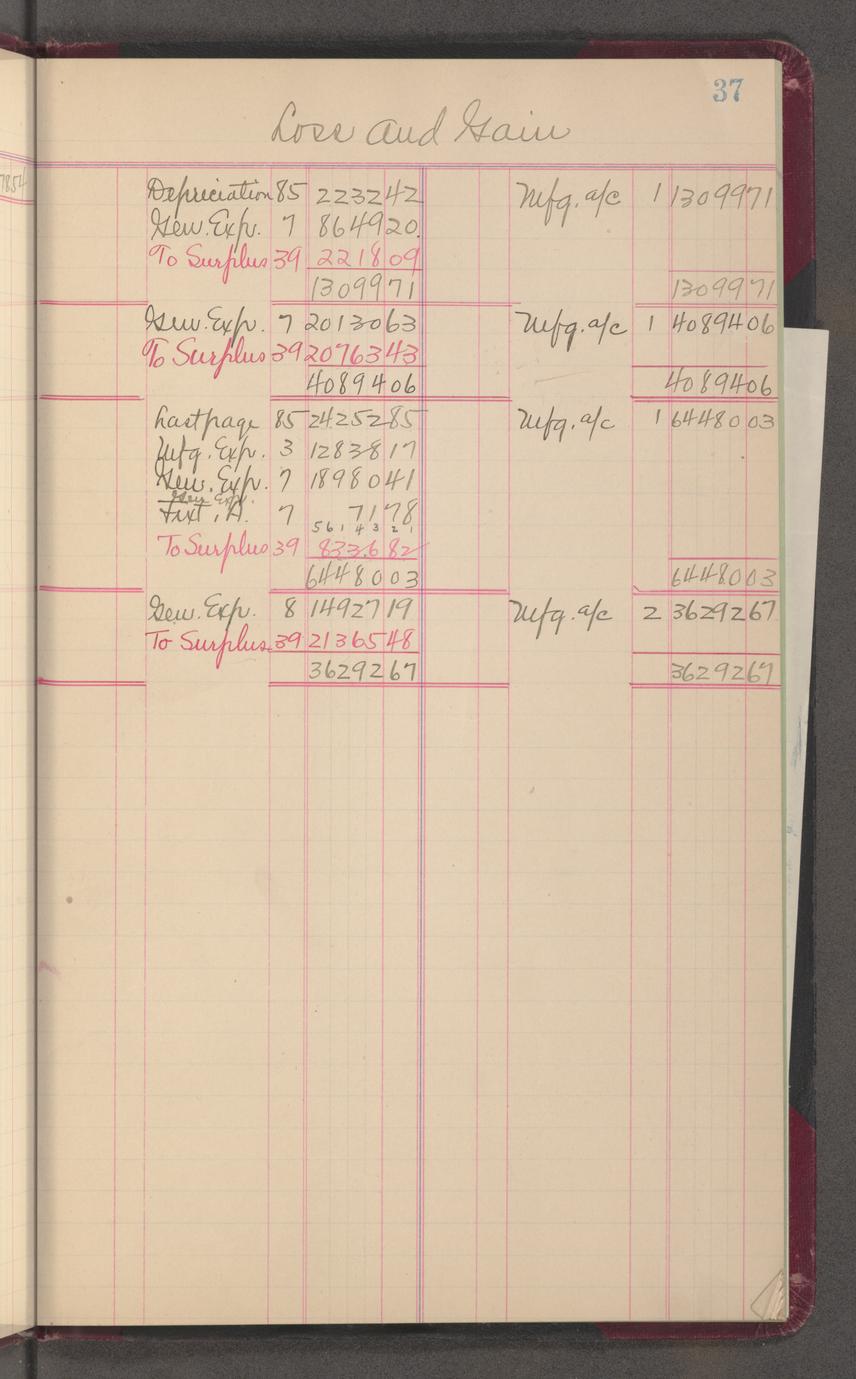 37
Loss and Gain
Depreciation 85 2232 42 Mfg. a/c 1 13099 71
Gen. Exp. 7 8649 20
To Surplus 39 2218 09
13099 71 13099 71
Gen. Exp. 7 20130 63 Mfg. a/c 1 40894 06
To Surplus 39 20763 43
40894 06 40894 06
Last page 85 24252 85 Mfg. a/c 1 64480 03
Mfg. Exp. 3 12838 17
Gen. Exp. 7 18980 41
Gen Exp.
Fixt. A. 7 71 78
5 6 1 4 3 2 1
To Surplus 39 8336 82
64480 03 64480 03
Gen. Exp. 8 14927 19 Mfg. a/c 2 36292 67
To Surplus 39 21365 48
36292 67 36292 67